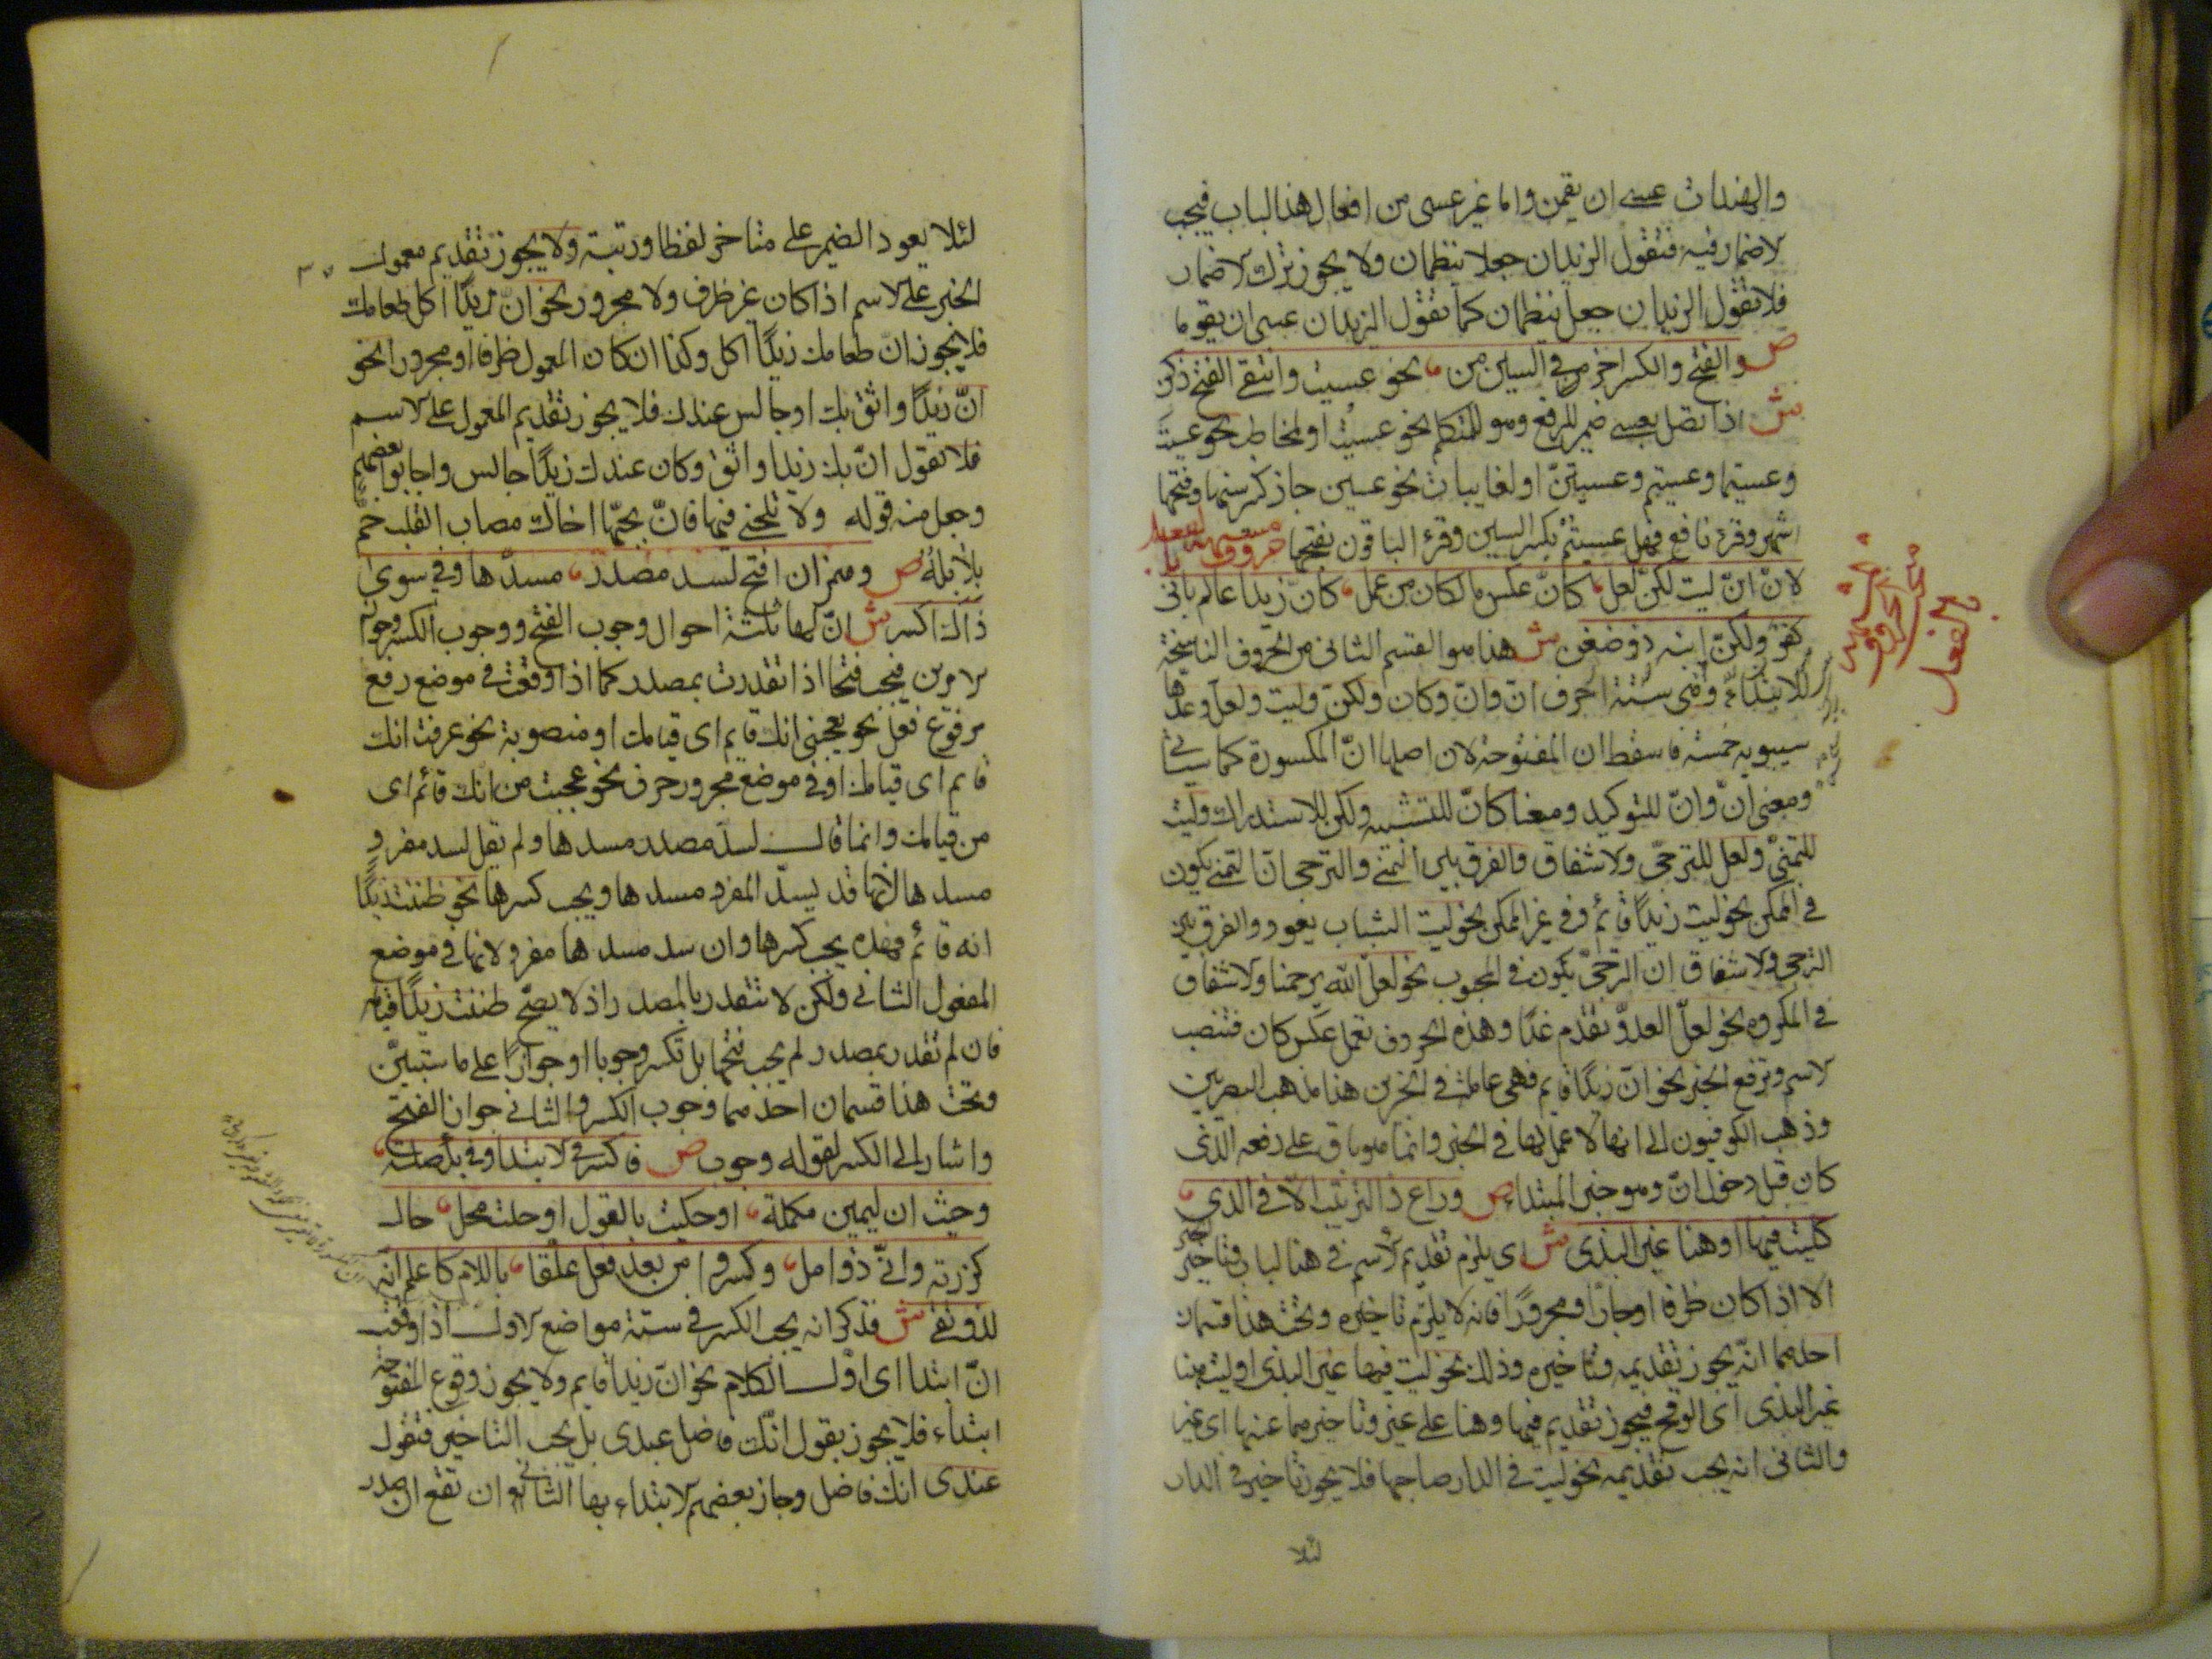 والهندات عسى ان يقمن واما غير عسى من افعال هذا الباب فيجب
لاضمار فيه فتقول الزيدان جعلا ينظمان ولا يجوز ترك لاضمار
فلا تقول الزيدان جعل ينظمان كما تقول الزيدان عسى ان يقوما
ص والفتح والكسر اجز في السين من ، نحو عسيت وانتقى الفتح زكن
ش اذا اتصل بعسى ضمير للرفع وهو للمتكلم نحو عسيت او لمخاطب نحو عسيت
وعسيتما وعسيتم وعسيتن او لغايبات نحو عسين جاز كسر سينها وفتحها
اشهر وقرء نافع فهل عسيتم بكسر السين وقرء الباقون بفتحها
لان ان ليت لكن لعل ، كان عكس ما لكان من عمل ، كان زيدا عالم باني
كفؤ ولكن ابنه ذو ضغن ش هذا هو القسم الثاني من الحروف الناسخة
للابتداء وهي ستة احرف ان وان وكان ولكن وليت ولعل وعدها
سيبويه خمسة فاسقط ان المفتوحة لان اصلها ان المكسورة كما سياتي
ومعنى ان وان للتوكيد ومعنا كان للتشبيه ولكن للاستدراك وليت
للتمني ولعل للترجي ولاشفاق والفرق بين التمني والترجي ان التمني يكون
في الممكن نحو ليت زيدا قائم وفي غير الممكن نحو ليت الشباب يعود والفرق بين
الترجي ولاشفاق ان الترجي يكون في المحبوب نحو لعل الله يرحمنا ولاشفاق
في المكروه نحو لعل العدو يقدم غدا وهذه الحروف تعمل عكس كان فتنصب
لاسم وترفع الخبر نحو ان زيدا قايم فهي عاملة في الجزين هذا مذهب البصريين
وذهب الكوفيون الى انها لا عمل لها في الخبر وانما هو باق على رفعه الذي
كان قبل دخول ان وهو خبر المبتداء ص وراع ذا الترتيب الا في الذي ،
كليت فيها او هنا غير البذي ش اي يلزم تقديم لاسم في هذا الباب وتاخير الخبر
الا اذا كان ظرفا او جارا ومجرورا فانه لا يلزم تاخيره وتحت هذا قسمان
احدهما انه يجوز تقديمه وتاخيره وذلك نحو ليت فيها غير البذي او ليت هنا
غير البذي اي الوقح فيجوز تقديم فيها وهنا على غير وتاخيرهما عنها اي غير
والثاني انه يجب تقديمه نحو ليت في الدار صاحبها فلا يجوز تاخير في الدار
لئلا
لئلا يعود الضمير على متاخر لفظا ورتبة ولا يجوز تقديم معمول
الخبر على لاسم اذا كان غير ظرف ولا مجرور نحو ان زيدا اكل طعامك
فلا يجوز ان طعامك زيدا اكل وكذا ان كان المعمول ظرفا او مجرورا نحو
ان زيدا واثق بك او جالس عندك فلا يجوز تقديم المعمول على لاسم
فلا تقول ان بك زيدا واثق وكان عندك زيدا جالس واجازه بعضهم
وجعل منه قوله ولا تلحني فيها فان بحبها اخاك مصاب القلب جم
بلابله ص وهمز ان افتح لسد مصدر ، مسدها وفي سوى
ذاك اكسر ش ان لها ثلثة احوال وجوب الفتح ووجوب الكسر وجواز
لامرين فيجب فتحها اذا تقدرت بمصدر كما اذا وقعت في موضع رفع
مرفوع فعل نحو يعجبني انك قايم اي قيامك او منصوبة نحو عرفت انك
قايم اي قيامك او في موضع مجرور حرف نحو عجبت من انك قائم اي
من قيامك وانما قال لسد مصدر مسدها ولم يقل لسد مفرد
مسدها لانها قد يسد المفرد مسدها ويجب كسرها نحو ظننت زيدا
انه قائم فهذه يجب كسرها وان سد مسدها مفرد لانها في موضع
المفعول الثاني ولكن لا تتقدر بالمصدر اذ لا يصح ظننت زيدا قيامه
فان لم تقدر بمصدر لم يجب فتحها بل تكسر وجوبا او جوازا على ما ستبين
وتحت هذا قسمان احدهما وجوب الكسر والثاني جواز الفتح
واشار الى الكسر لقوله وجوب ص فاكسر في لابتدا وفي بدء صلة ،
وحيث ان ليمين مكملة ، او حكيت بالقول او حلت محل ، حال
كزرته واني ذو امل ، وكسروا من بعد فعل علقا ، باللام كاعلم انه
لذو تقى ش فذكر انه يجب الكسر في ستة مواضع لاول اذا وقعت
ان ابتدا اي اول الكلام نحو ان زيدا قايم ولا يجوز وقوع المفتوحة
ابتداء فلا يجوز بقول انك فاضل عندي بل يجب التاخير فتقول
عندي انك فاضل وجاز بعضهم لابتداء بها الثاني ان تقع ان صدر